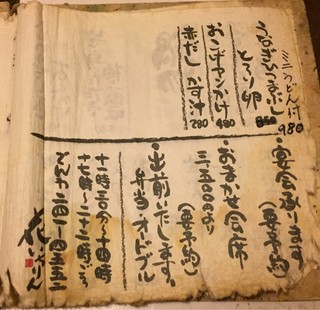 ミニうどん付
うなぎひつまぶし 980
とろり卵 850
おこげアンかけ 480
赤だし かす汁 280
・宴会承ります
(要予約)
・おまかせ会席
三五〇〇より
(要予約)
・出前いたします。
弁当・オードブル
十一時三十分〜十四時
十七時〜二十二時ごろ